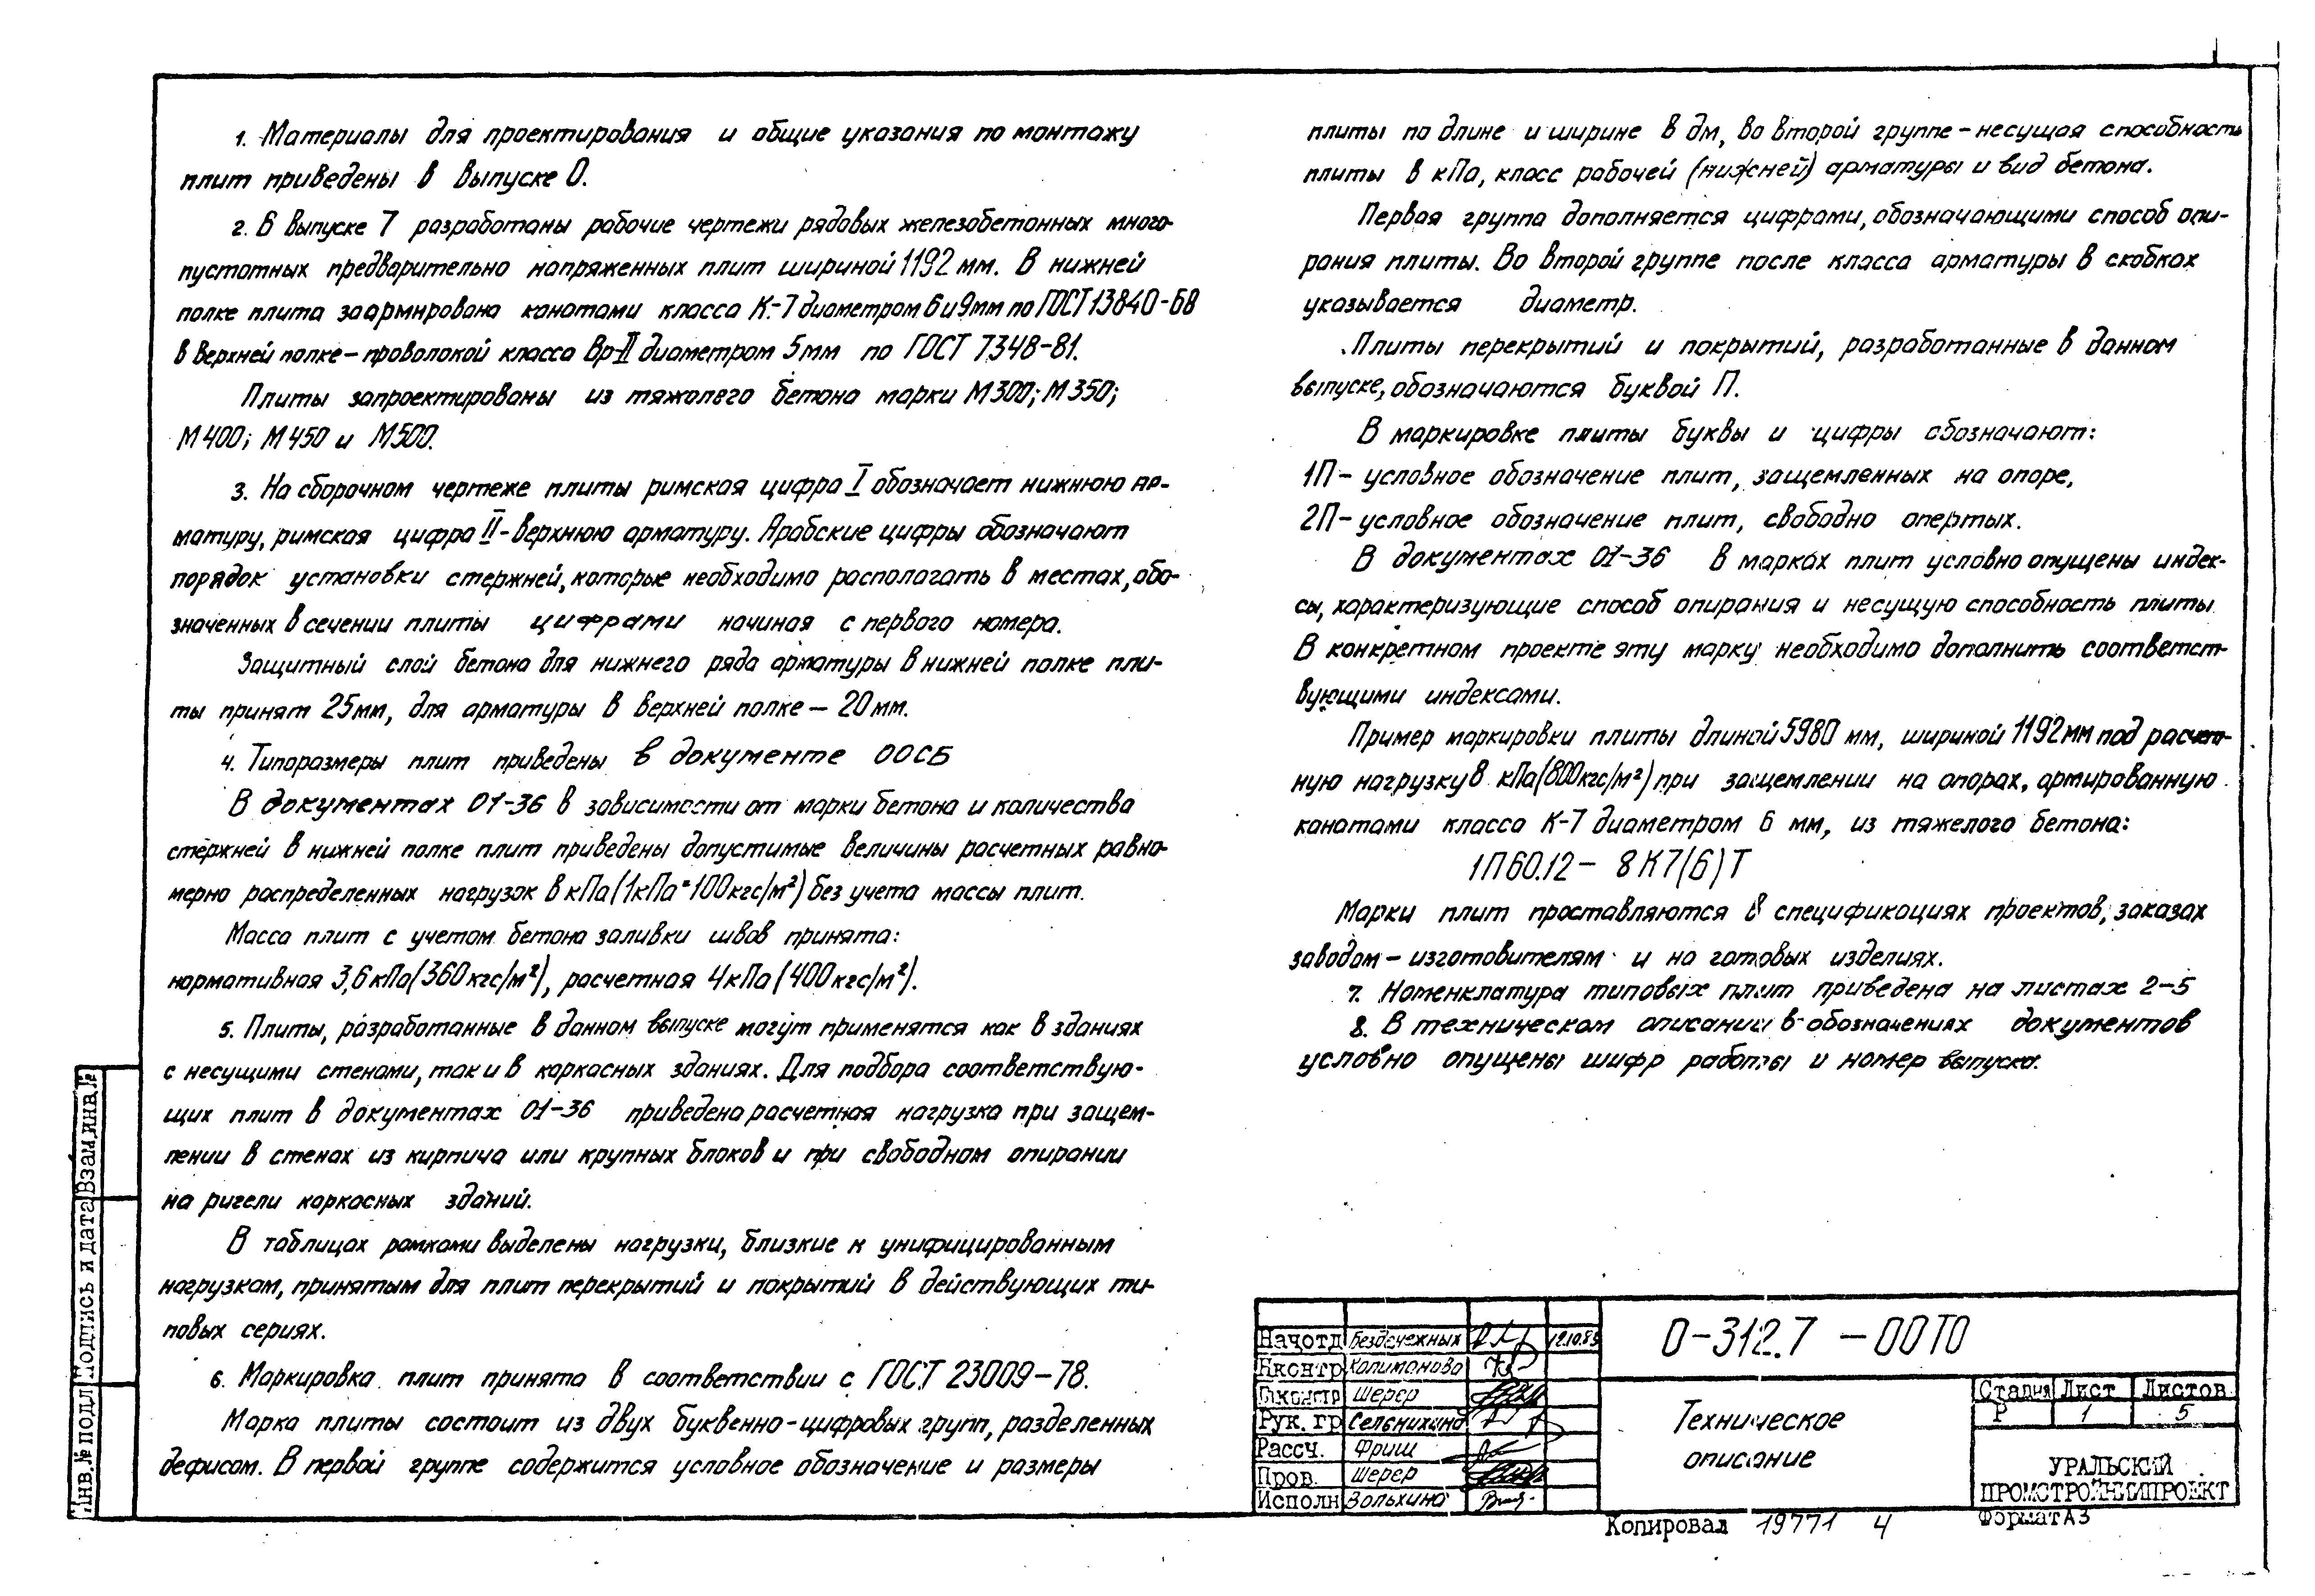 1. Материалы для проектирования и общие указания по монтажу
плит приведены в выпуске 0.
2. В выпуске 7 разработаны рабочие чертежи рядовых железобетонных много-
пустотных предварительно напряженных плит шириной 1192 мм. В нижней
полке плита заармирована канатами класса К-7 диаметром 6 и 9мм по ГОСТ 13840-68
в верхней полке - проволокой класса Вр-II диаметром 5мм по ГОСТ 7348-81.
Плиты запроектированы из тяжолого бетона марки М300; М350;
М400; М450 и М500.
3. На сборочном чертеже плиты римская цифра I обозначает нижнюю ар-
матуру, римская цифра II - верхнюю арматуру. Арабские цифры обозначают
порядок установки стержней, которые необходимо распологать в местах, обо-
значенных в сечении плиты цифрами начиная с первого номера.
Защитный слой бетона для нижнего ряда арматуры в нижней полке пли-
ты принят 25мм, для арматуры в верхней полке - 20мм.
4. Типоразмеры плит приведены в документе 00СБ
В документах 01-36 в зависимости от марки бетона и количества
стержней в нижней полке плит приведены допустимые величины расчетных равно-
мерно распределенных нагрузок в кПа (1кПа=100кгс/м²) без учета массы плит.
Масса плит с учетом бетона заливки швов принята:
нормативная 3,6кПа (360кгс/м²), расчетная 4кПа (400кгс/м²).
5. Плиты, разработанные в данном выпуске могут применятся как в зданиях
с несущими стенами, так и в каркасных зданиях. Для подбора соответствую-
щих плит в документах 01-36 приведена расчетная нагрузка при защем-
лении в стенах из кирпича или крупных блоков и при свободном опирании
на ригели каркасных зданий.
В таблицах рамками выделены нагрузки, близкие к унифицированным
нагрузкам, принятым для плит перекрытий и покрытий в действующих ти-
повых сериях.
6. Маркировка плит принята в соответствии с ГОСТ 23009-78.
Марка плиты состоит из двух буквенно-цифровых групп, разделенных
дефисом. В первой группе содержится условное обозначение и размеры
плиты по длине и ширине в дм, во второй группе - несущая способность
плиты в кПа, класс рабочей (нижней) арматуры и вид бетона.
Первая группа дополняется цифрами, обозначающими способ опи-
рания плиты. Во второй группе после класса арматуры в скобках
указывается диаметр.
Плиты перекрытий и покрытий, разработанные в данном
выпуске, обозначаются буквой П.
В маркировке плиты буквы и цифры обозначают:
1П - условное обозначение плит, защемленных на опоре,
2П - условное обозначение плит, свободно опертых.
В документах 01-36 в марках плит условно опущены индек-
сы, характеризующие способ опирания и несущую способность плиты.
В конкретном проекте эту марку необходимо дополнить соответст-
вующими индексами.
Пример маркировки плиты длиной 5980 мм, шириной 1192мм под расчет-
ную нагрузку 8 кПа (800кгс/м²) при защемлении на опорах, армированную
канатами класса К-7 диаметром 6 мм, из тяжелого бетона:
1П60.12 - 8К7(6)Т
Марки плит проставляются в спецификациях проектов, заказах
заводам - изготовителям и на готовых изделиях.
7. Номенклатура типовых плит приведена на листах 2-5
8. В техническом описании в обозначениях документов
условно опущены шифр работы и номер выпуска.
Взам.инв.№
Подпись и дата
Инв.№ подл
Нач.отд Безденежных 12.10.83
Н.контр Калиманова
Гл.констр Шерер
Рук. гр Сельнихина
Рассч. Фриш
Пров. Шерер
Исполн Вольхина
0-312.7 - 00Т0
Техническое
описание
Стадия Лист Листов
Р 1 5
УРАЛЬСКИЙ
ПРОМСТРОЙНИИПРОЕКТ
Копировал 19771 4
Формат А3